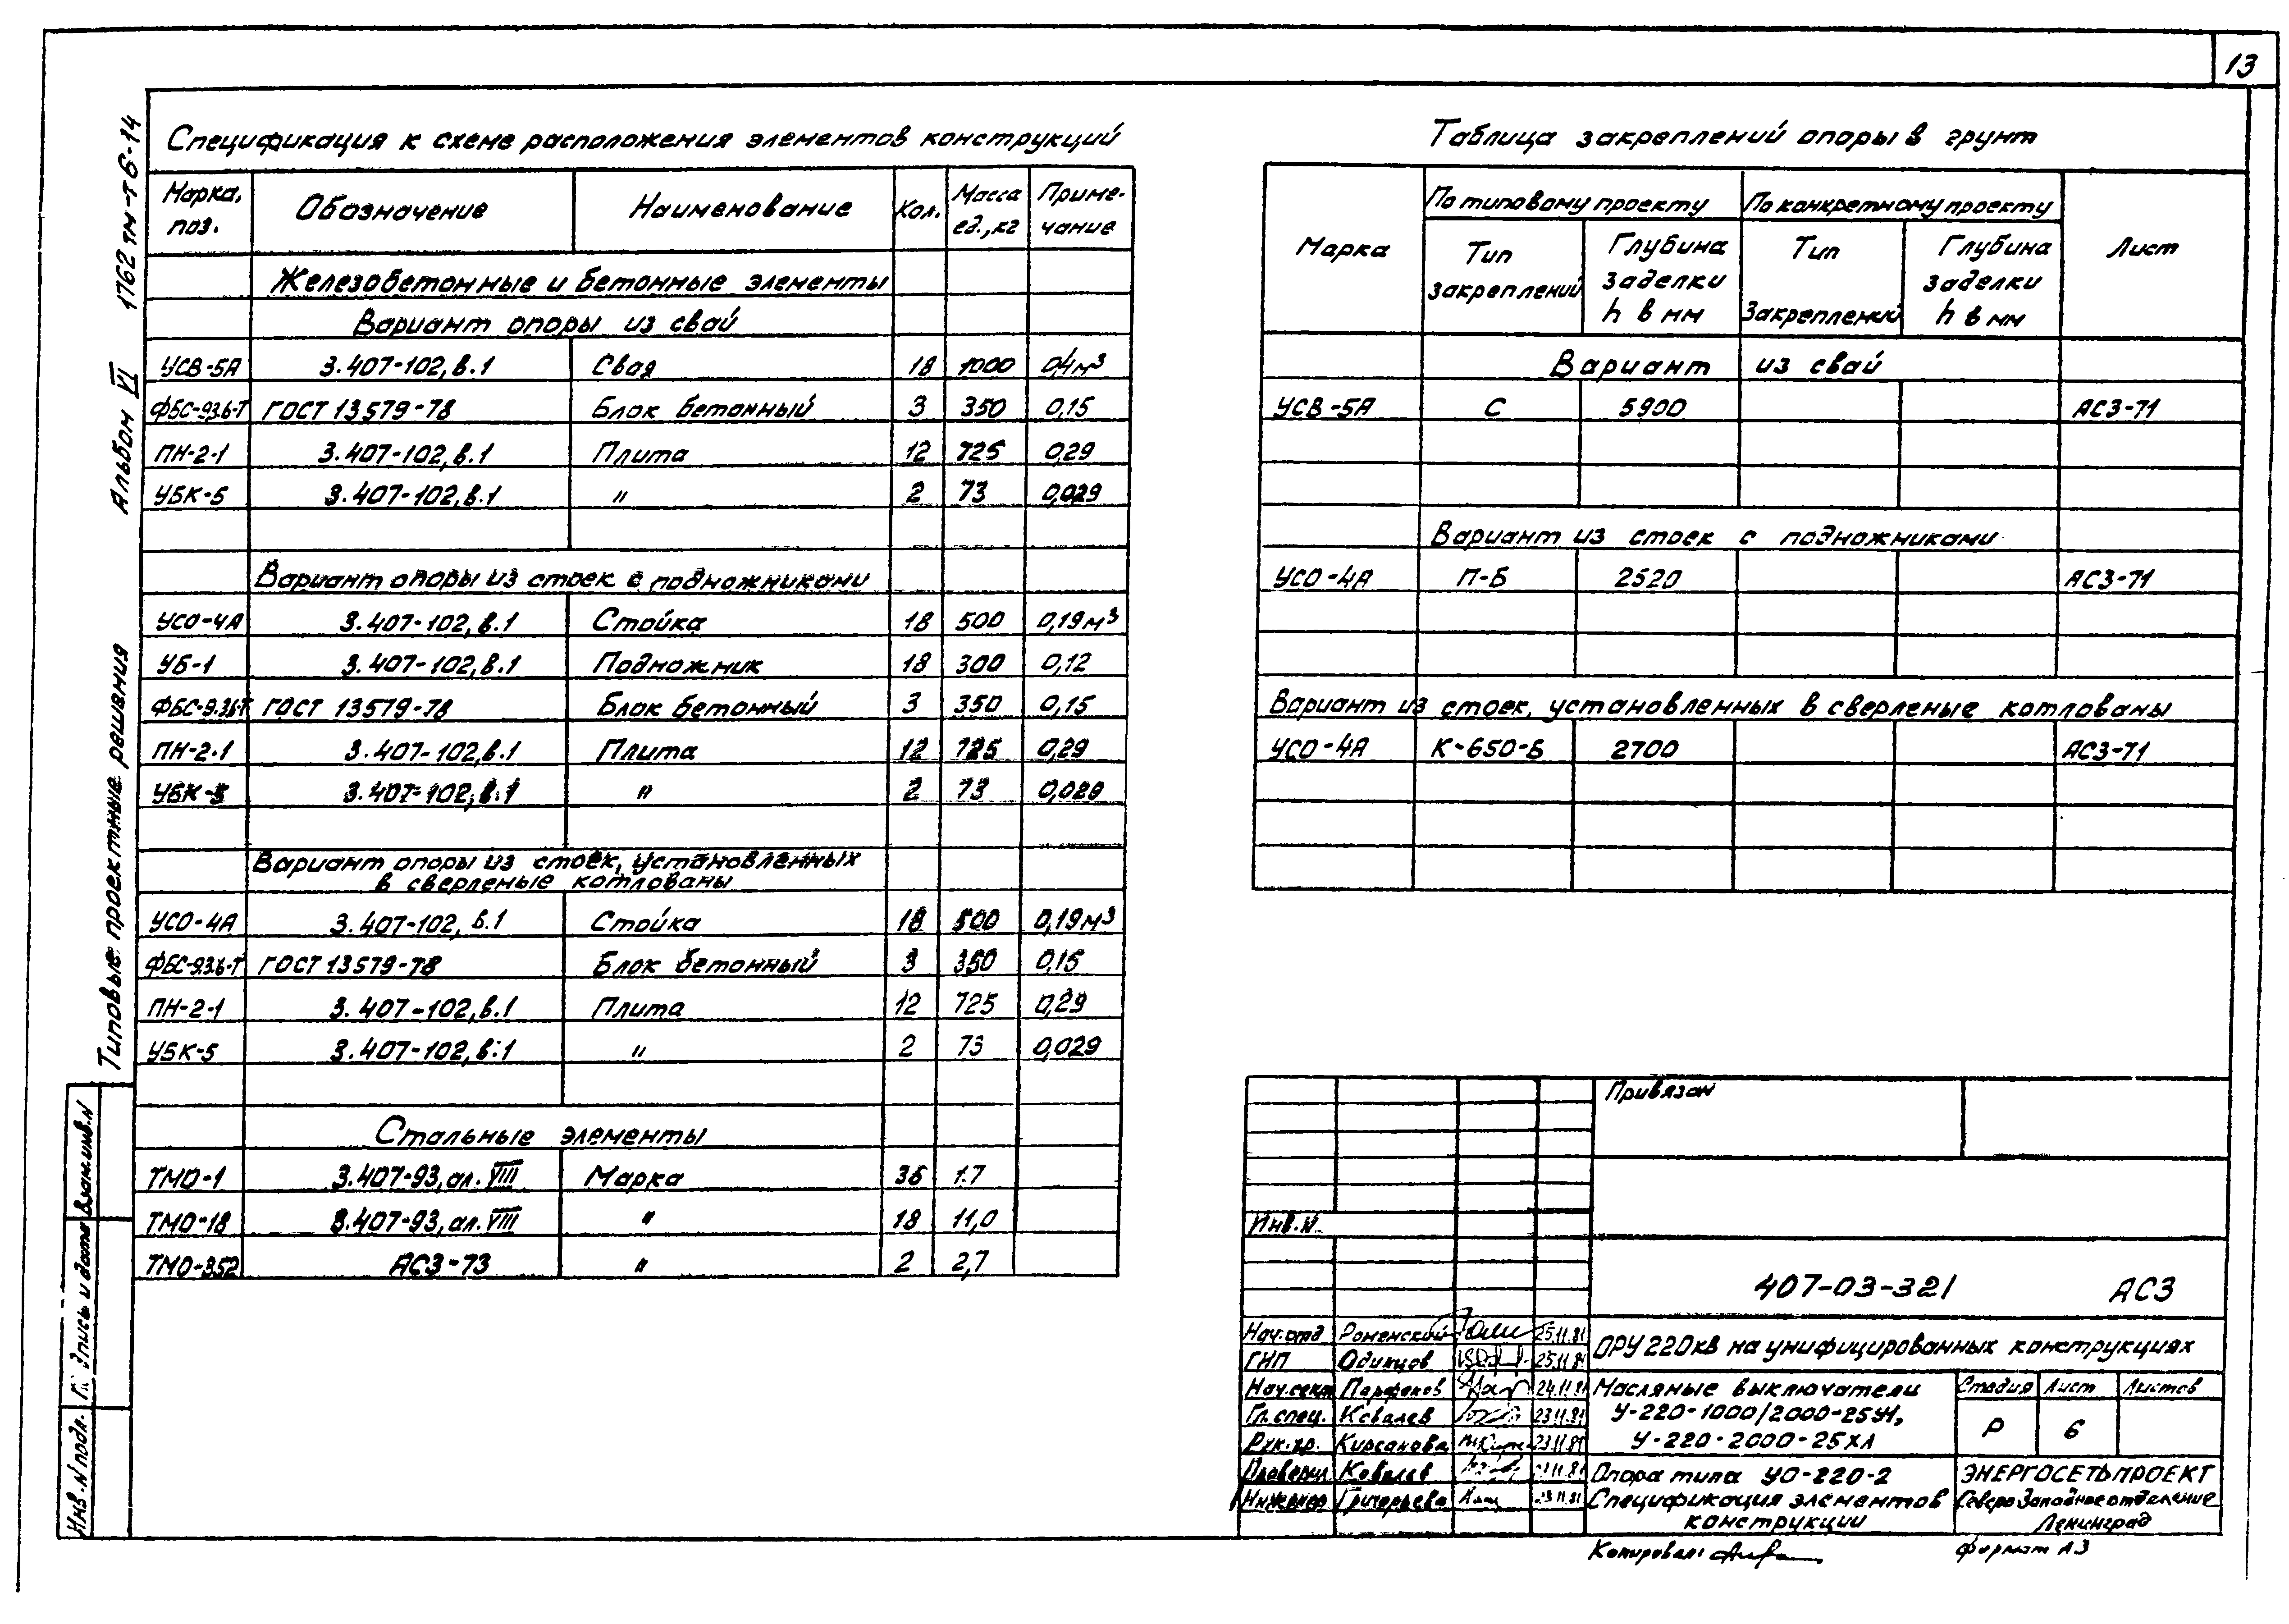 13
1762 тм-т 6-14
Альбом VI
Типовые проектные решения
Взам.инв.N
Инв.N подл.
Спецификация к схеме расположения элементов конструкций
Марка, поз. Обозначение Наименование Кол. Масса ед.,кг Приме-чание
Железобетонные и бетонные элементы
Вариант опоры из свай
УСВ-5А 3.407-102, в.1 Свая 18 1000 0,4м³
ФБС-9.3.6-Т ГОСТ 13579-78 Блок бетонный 3 350 0,15
ПН-2-1 3.407-102, в.1 Плита 12 725 0,29
УБК-5 3.407-102, в.1 " 2 73 0,029
Вариант опоры из стоек с подножниками
УСО-4А 3.407-102, в.1 Стойка 18 500 0,19м³
УБ-1 3.407-102, в.1 Подножник 18 300 0,12
ФБС-9.3.6-Т ГОСТ 13579-78 Блок бетонный 3 350 0,15
ПН-2-1 3.407-102, в.1 Плита 12 725 0,29
УБК-5 3.407-102, в.1 " 2 73 0,029
Вариант опоры из стоек, установленных
в сверленые котлованы
УСО-4А 3.407-102, в.1 Стойка 18 500 0,19м³
ФБС-9.3.6-Т ГОСТ 13579-78 Блок бетонный 3 350 0,15
ПН-2-1 3.407-102, в.1 Плита 12 725 0,29
УБК-5 3.407-102, в.1 " 2 73 0,029
Стальные элементы
ТМО-1 3.407-93, ал. VIII Марка 36 1.7
ТМО-18 3.407-93, ал. VIII " 18 11,0
ТМО-352 АС3-73 " 2 2,7
Таблица закреплений опоры в грунт
Марка По типовому проекту По конкретному проекту Лист
Тип закреплений Глубина заделки h в мм Тип закреплений Глубина заделки h в мм
Вариант из свай
УСВ-5А С 5900 АС3-71
Вариант из стоек с подножниками
УСО-4А П-Б 2520 АС3-71
Вариант из стоек, установленных в сверленые котлованы
УСО-4А К-650-Б 2700 АС3-71
Привязан
Инв.N
407-03-321 АС3
Нач.отд Роменский 25.11.81
ГИП Одинцов 25.11.81
Нач.сект Парфенов 24.11.81
Гл.спец. Ковалев 23.11.81
Рук.гр. Кирсанова 23.11.81
Проверил Ковалев
Инженер Григорьева 23.11.81
ОРУ 220кВ на унифицированных конструкциях
Масляные выключатели
У-220-1000/2000-25У1,
У-220-2000-25ХЛ
Стадия Лист Листов
Р 6
Опора типа УО-220-2
Спецификация элементов
конструкции
ЭНЕРГОСЕТЬПРОЕКТ
Северо-Западное отделение
Ленинград
Копировал:
Формат А3